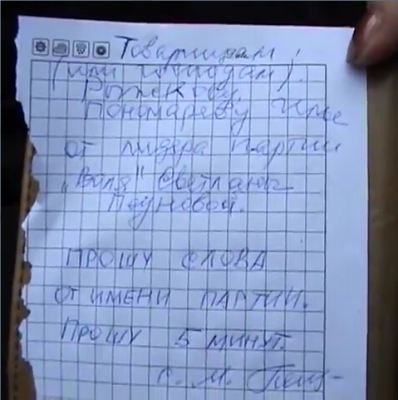 Товарищам!
(или господам)!
Рыжкову,
Пономареву Илье
от лидера партии
"Воля" Светланы
Пеуновой.
ПРОШУ СЛОВА
ОТ ИМЕНИ ПАРТИИ.
ПРОШУ 5 МИНУТ.
С. М.